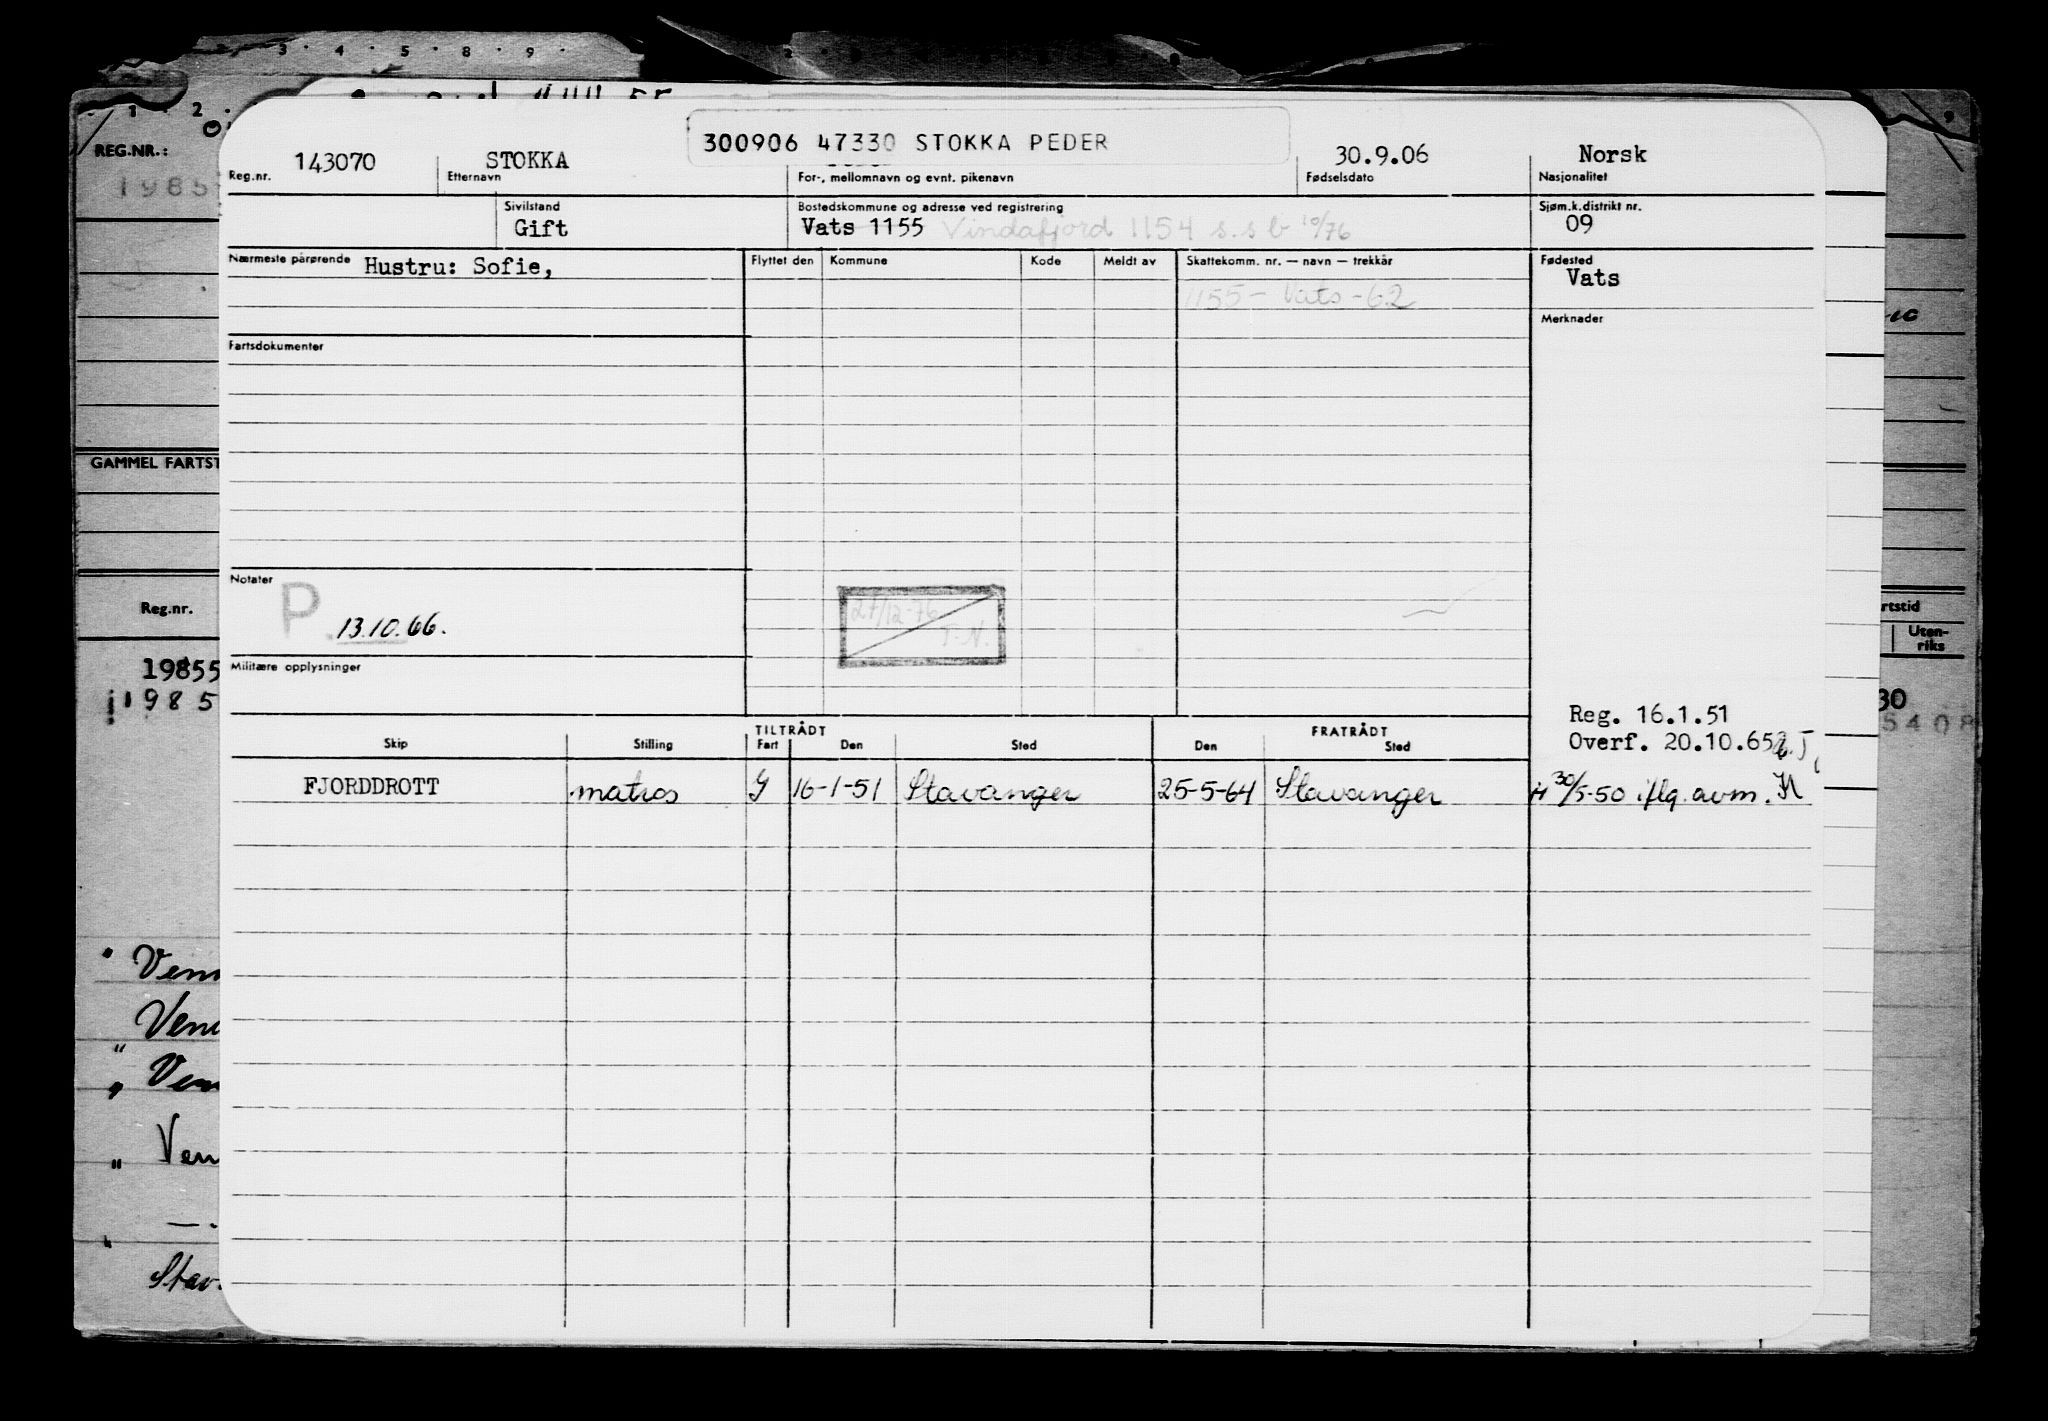 3 . 4 . 5 . 8 . 9 .
1 . 2 .
REG.NR.:
1985
GAMMEL FARTST
Reg.nr.
19855
1985
Ven
Ven
Ven
Ven
Stav
300906 47330 STOKKA PEDER
143070 STOKKA 30.9.06 Norsk
Reg.nr. Etternavn For-, mellomnavn og evnt. pikenavn Fødselsdato Nasjonalitet
Sivilstand Bostedskommune og adresse ved registrering Sjøm.k.distrikt nr.
Gift Vats 1155 Vindafjord 1154 s.s b 10/76 09
Nærmeste pårørende Hustru: Sofie, Flyttet den Kommune Kode Meldt av Skattekomm. nr. — navn — trekkår Fødested
Vats
1155 - Vats - 62
Merknader
Fartsdokumenter
Notater
P. 13.10.66.
27/12-76
T.N.
Militære opplysninger
Reg. 16.1.51
Overf. 20.10.65
TILTRÅDT FRATRÅDT
Skip Stilling Fart Den Sted Den Sted
FJORDDROTT matros G 16-1-51 Stavanger 25-5-64 Stavanger H 30/5-50 iflg. avm.
rtstid
Uten-
riks
30
5408